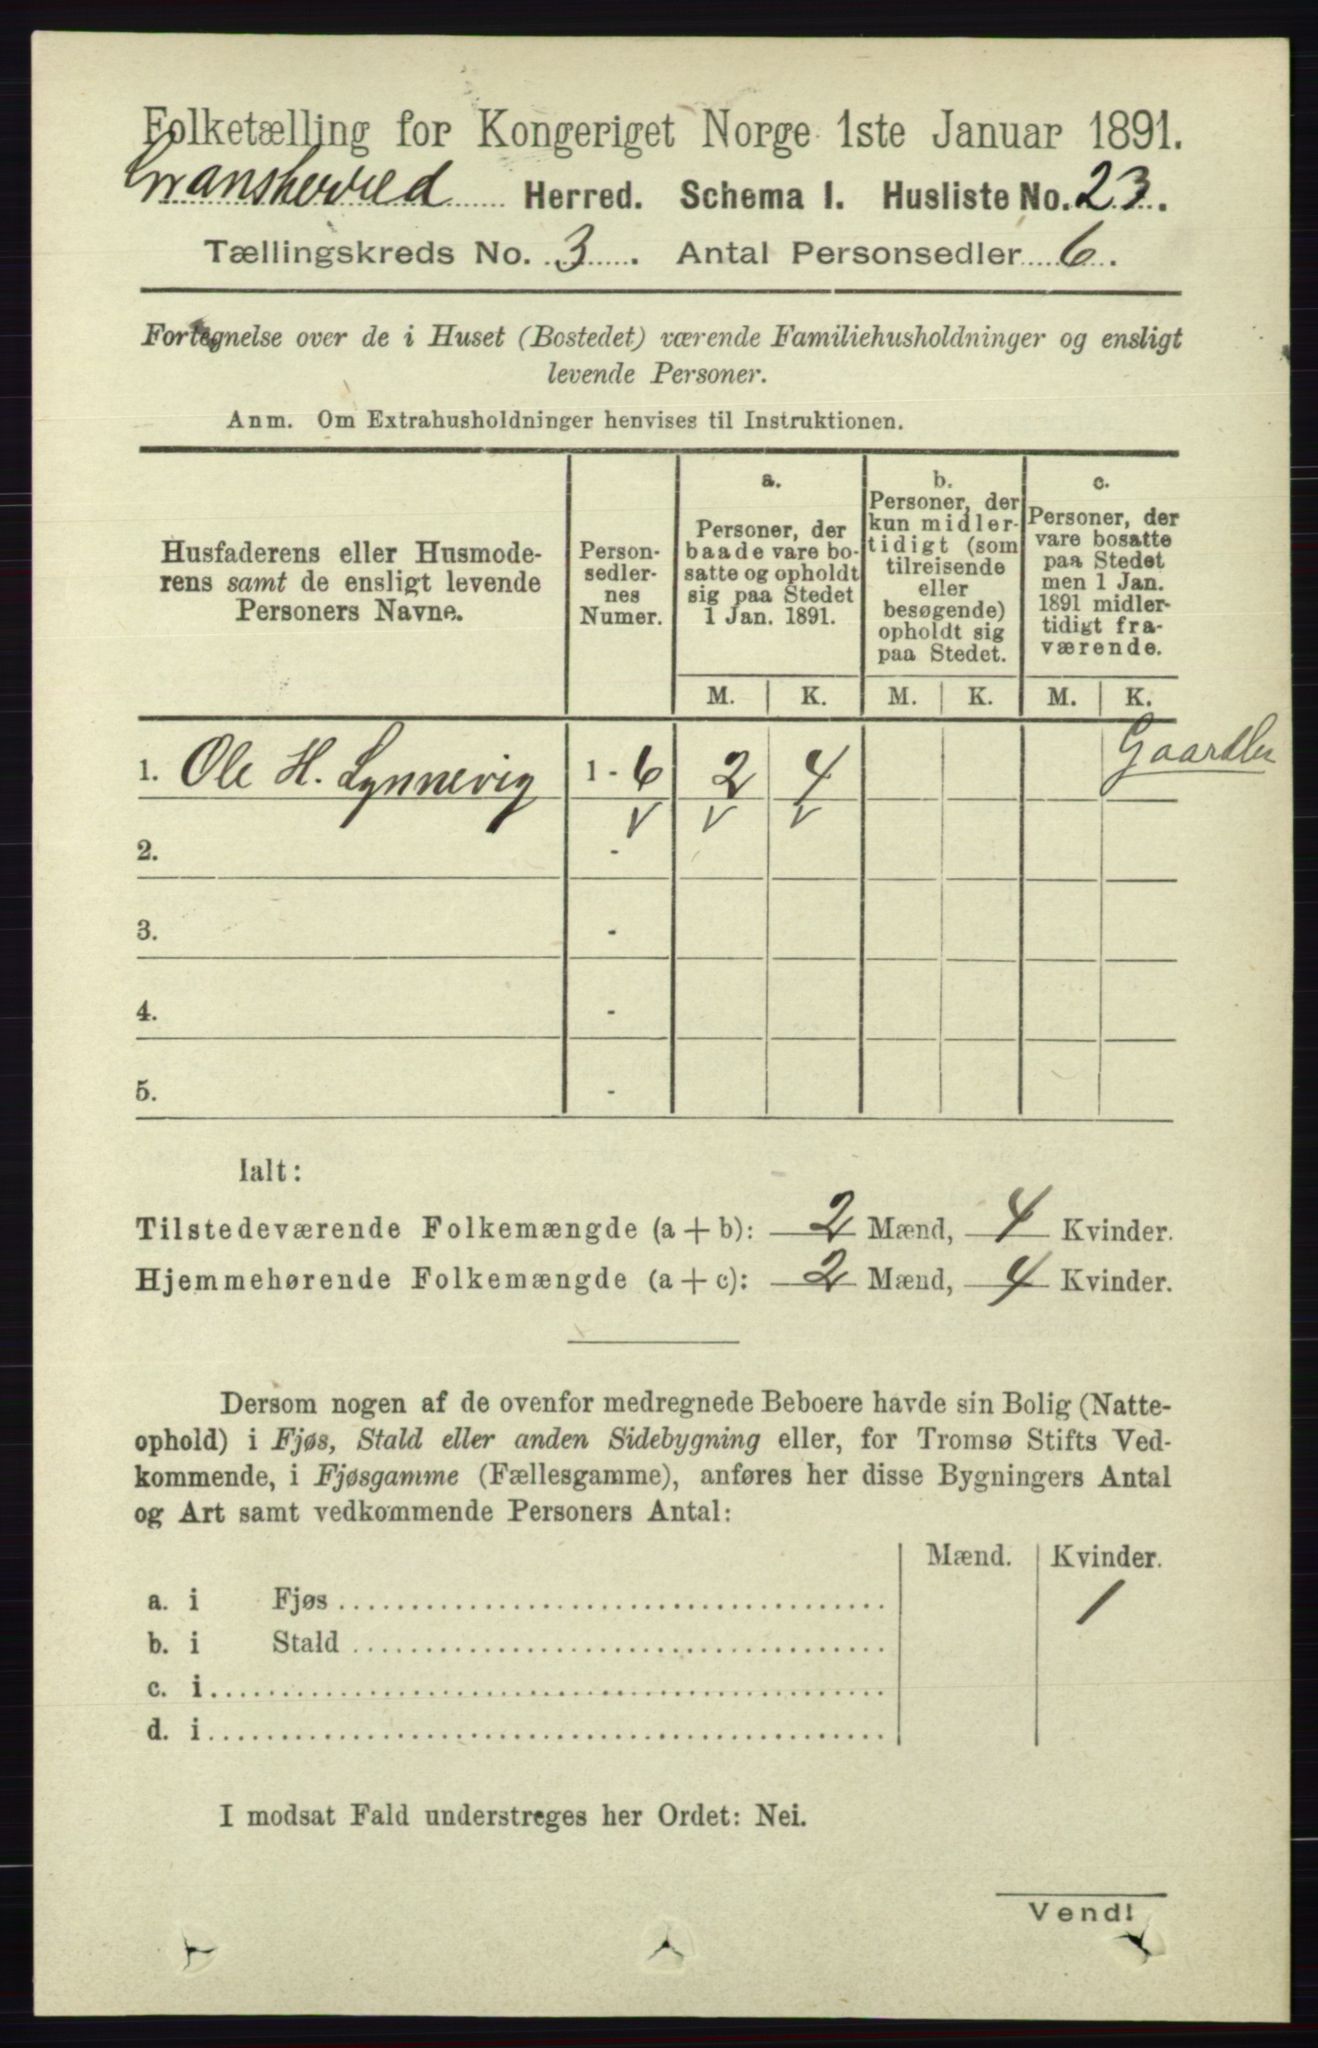 Folketælling for Kongeriget Norge 1ste Januar 1891.
Gransherred Herred. Schema I. Husliste No. 23.
Tællingskreds No. 3. Antal Personsedler 6.
Fortegnelse over de i Huset (Bostedet) værende Familiehusholdninger og ensligt
levende Personer.
Anm. Om Extrahusholdninger henvises til Instruktionen.
Husfaderens eller Husmode-
rens samt de ensligt levende
Personers Navne.
Person-
sedler-
nes
Numer.
a.
Personer, der
baade vare bo-
satte og opholdt
sig paa Stedet
1 Jan. 1891.
b.
Personer, der
kun midler-
tidigt (som
tilreisende
eller
besøgende)
opholdt sig
paa Stedet.
c.
Personer, der
vare bosatte
paa Stedet
men 1 Jan.
1891 midler-
tidigt fra-
værende.
M. K. M. K. M. K.
1. Ole H. Lynnevig 1 - 6 2 4
2. -
3. -
4. -
5. -
Ialt:
Tilstedeværende Folkemængde (a + b): 2 Mænd, 4 Kvinder.
Hjemmehørende Folkemængde (a + c): 2 Mænd, 4 Kvinder.
Dersom nogen af de ovenfor medregnede Beboere havde sin Bolig (Natte-
ophold) i Fjøs, Stald eller anden Sidebygning eller, for Tromsø Stifts Ved-
kommende, i Fjøsgamme (Fællesgamme), anføres her disse Bygningers Antal
og Art samt vedkommende Personers Antal:
Mænd. Kvinder.
a. i Fjøs 1
b. i Stald
c. i
d. i
I modsat Fald understreges her Ordet: Nei.
Vend!